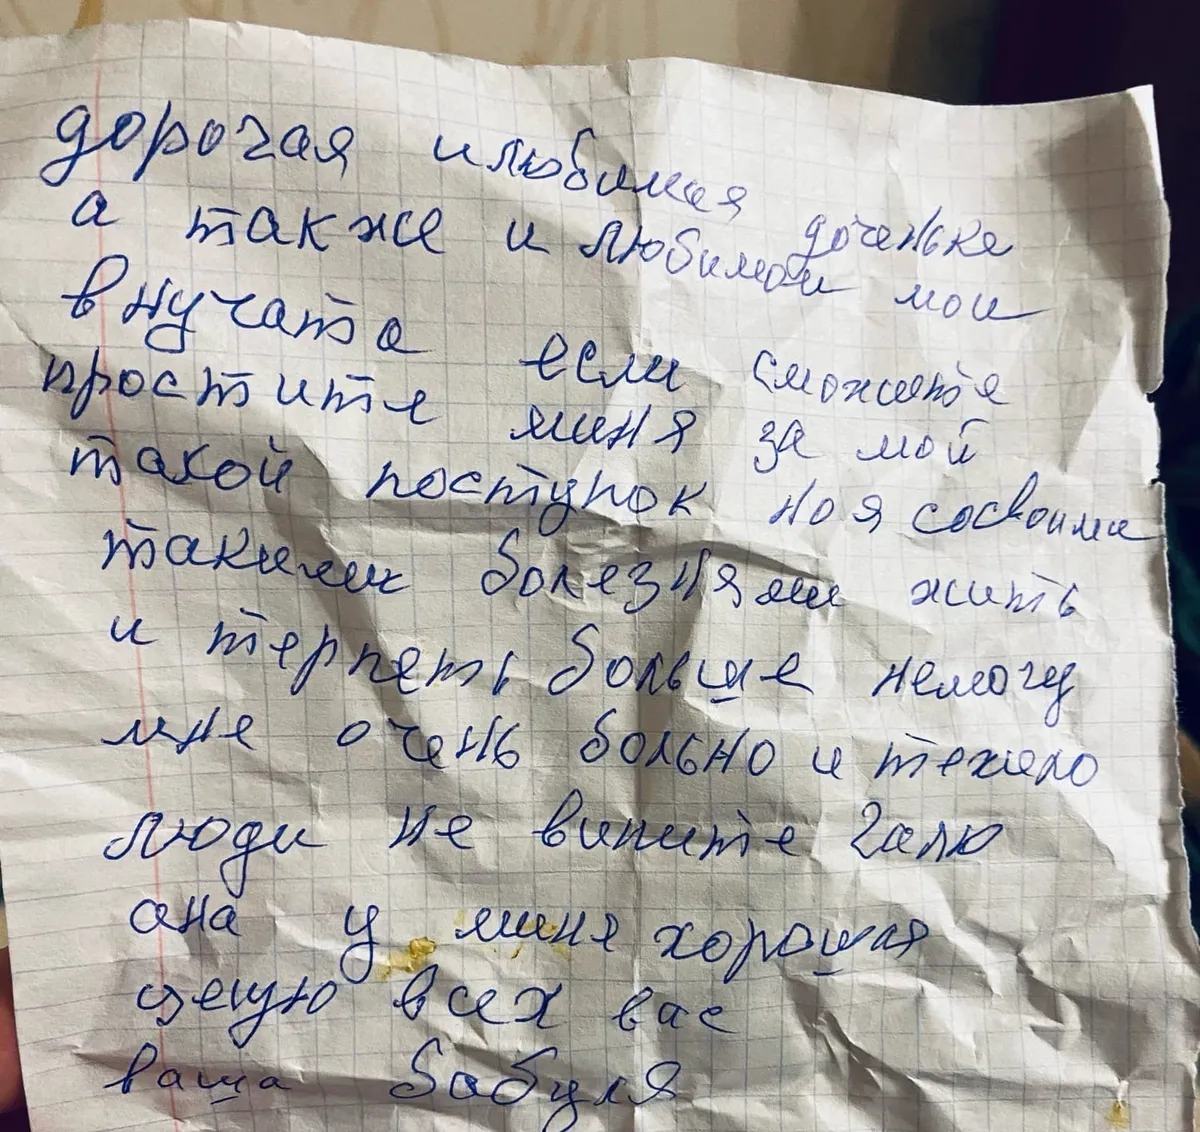 дорогая илюбимая доченька
а также и любимои мои
внучата если сможите
простите миня за мой
такой поступок но я сосвоими
такими болезнями жить
и терпеть больше немогу
мне очень больно и тежило
люди не вините Галю
она у миня хорошая
целую всех вас
ваша бабуля